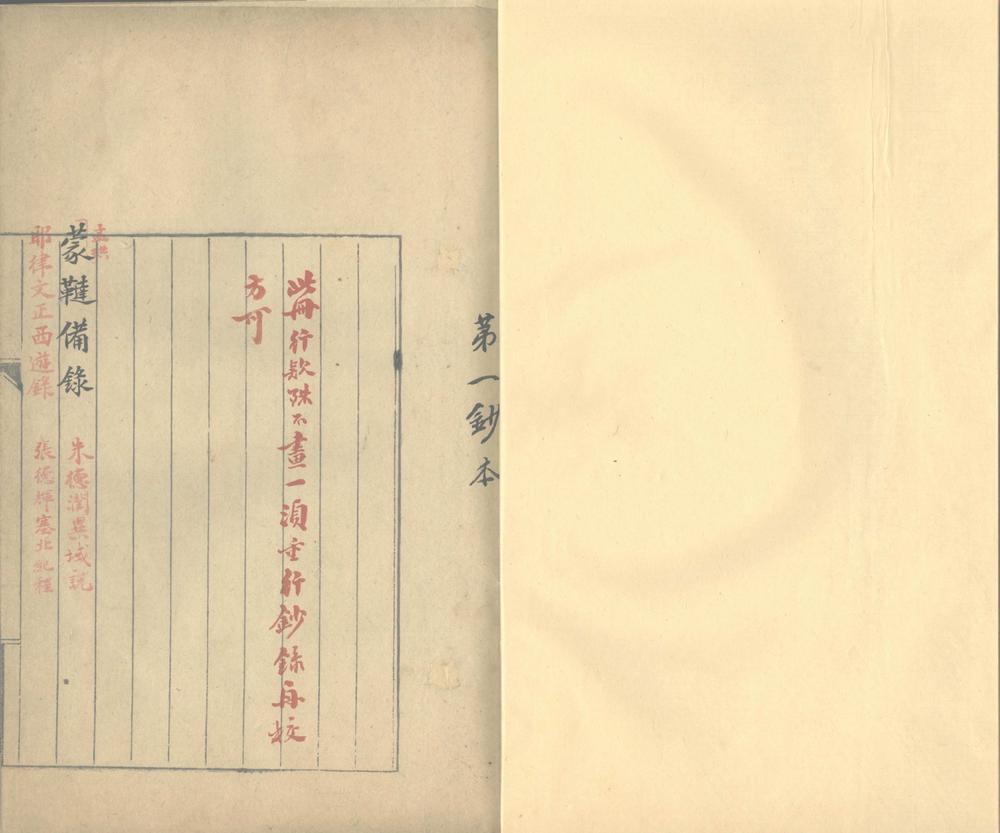 第一鈔本
此冊行款殊不畫一須重行鈔錄再校
方可
孟珙
蒙韃備錄
朱德潤異域說
耶律文正西遊錄
張德輝塞北紀程